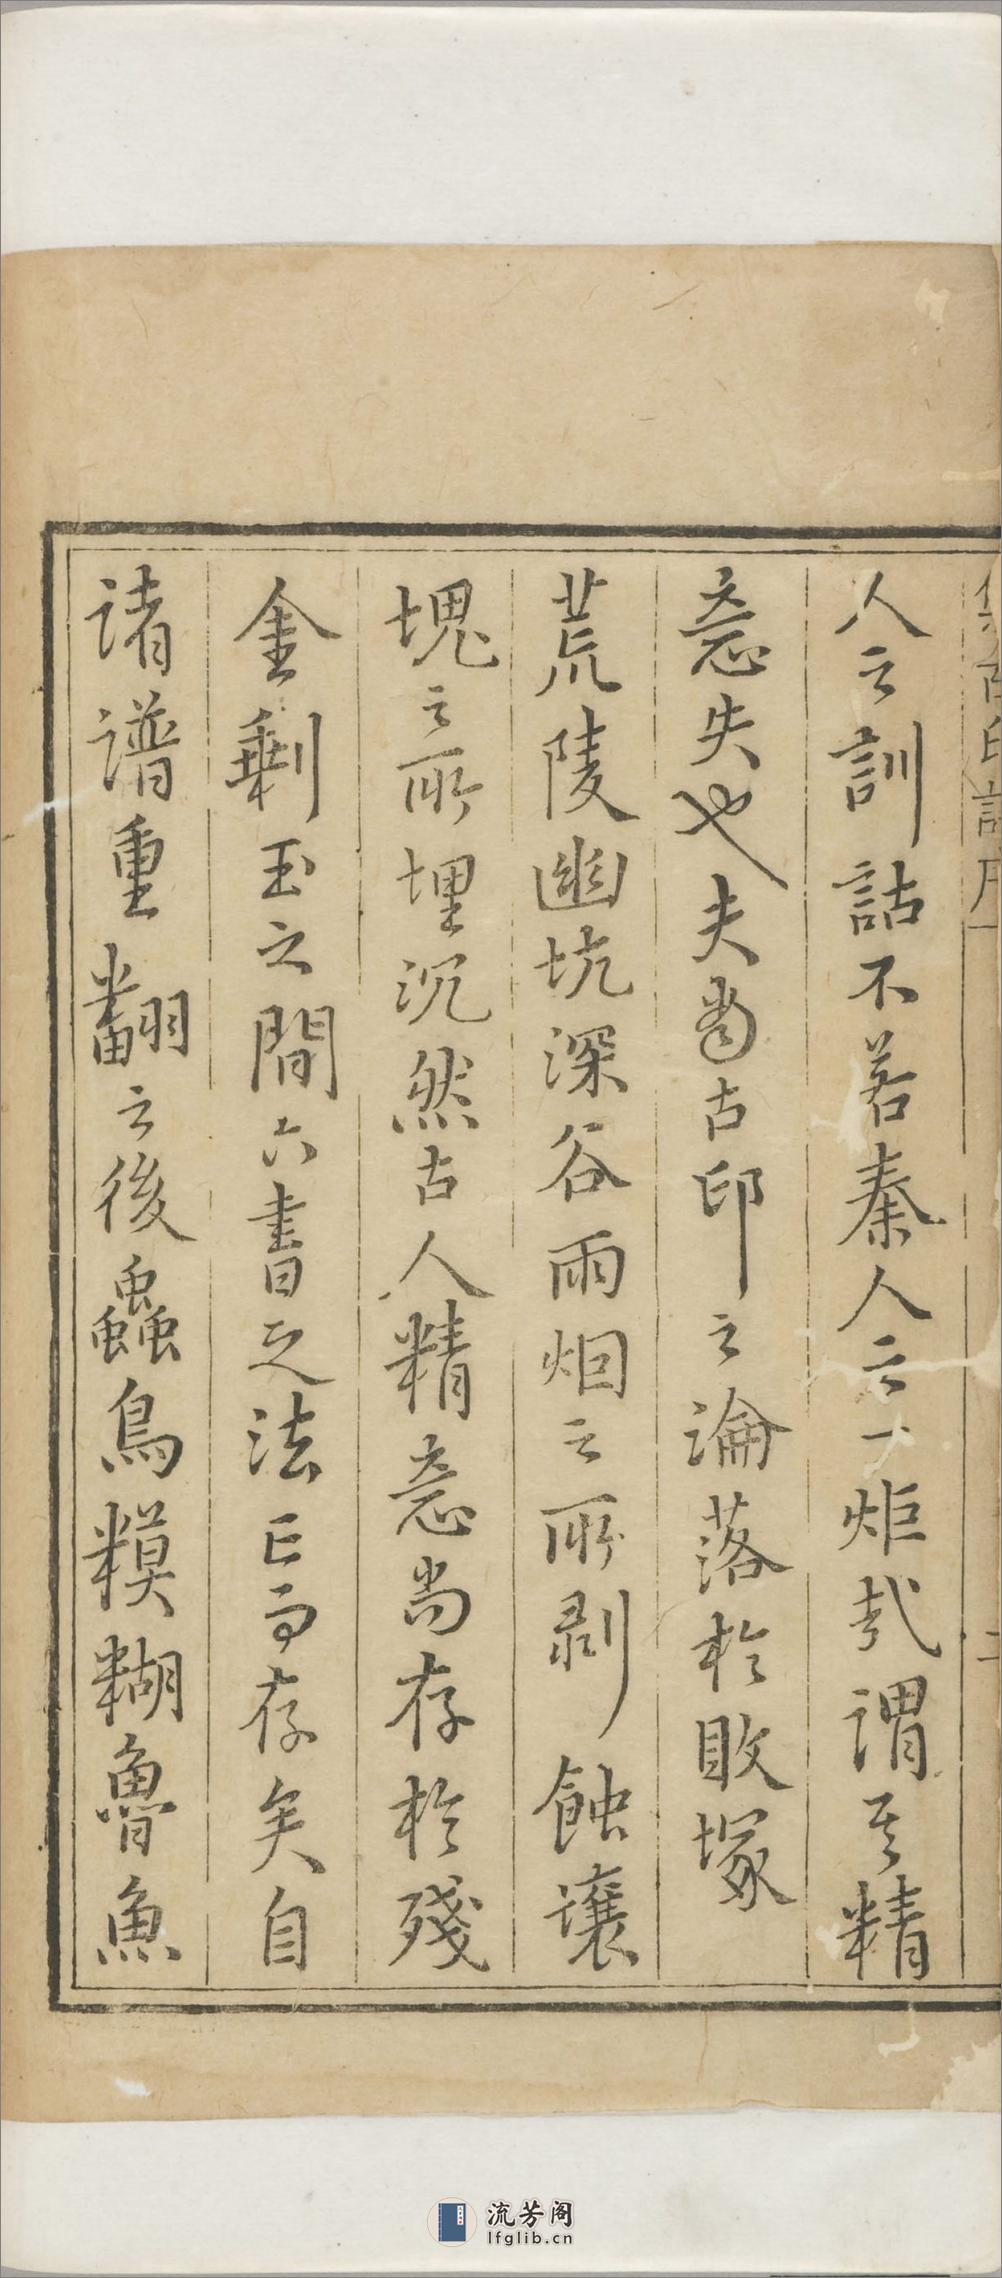 集古印譜序
二
人之訓詁不若秦人之一炬哉謂其精
意失也夫尚古印之淪落於敗塚
荒陵幽坑深谷雨烟之所剥蝕壤
塊之所埋沉然古人精意尚存於殘
金剩玉之間六書之法亡而存矣自
諸譜重翻之後蟲鳥糢糊魯魚
流芳阁
lfglib.cn